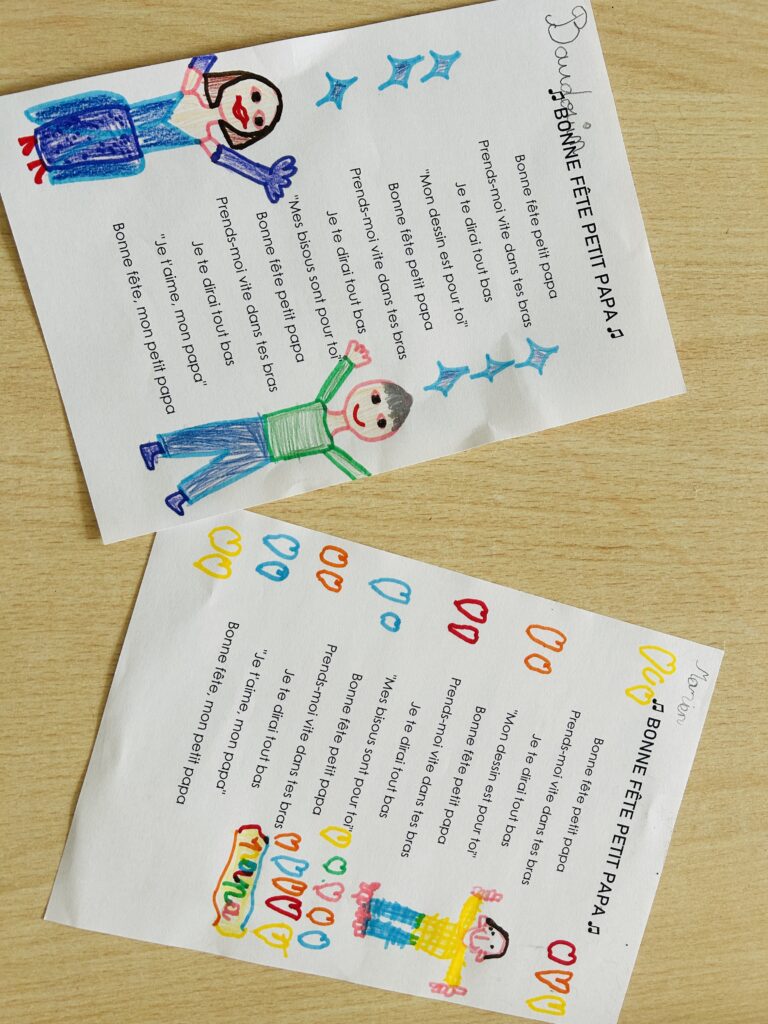 ♫ BONNE FÊTE PETIT PAPA ♫
Bonne fête petit papa
Prends-moi vite dans tes bras
Je te dirai tout bas
"Mon dessin est pour toi"
Bonne fête petit papa
Prends-moi vite dans tes bras
Je te dirai tout bas
"Mes bisous sont pour toi"
Bonne fête petit papa
Prends-moi vite dans tes bras
Je te dirai tout bas
"Je t'aime, mon papa"
Bonne fête, mon petit papa
Marion
♫ BONNE FÊTE PETIT PAPA ♫
Bonne fête petit papa
Prends-moi vite dans tes bras
Je te dirai tout bas
"Mon dessin est pour toi"
Bonne fête petit papa
Prends-moi vite dans tes bras
Je te dirai tout bas
"Mes bisous sont pour toi"
Bonne fête petit papa
Prends-moi vite dans tes bras
Je te dirai tout bas
"Je t'aime, mon papa"
Bonne fête, mon petit papa